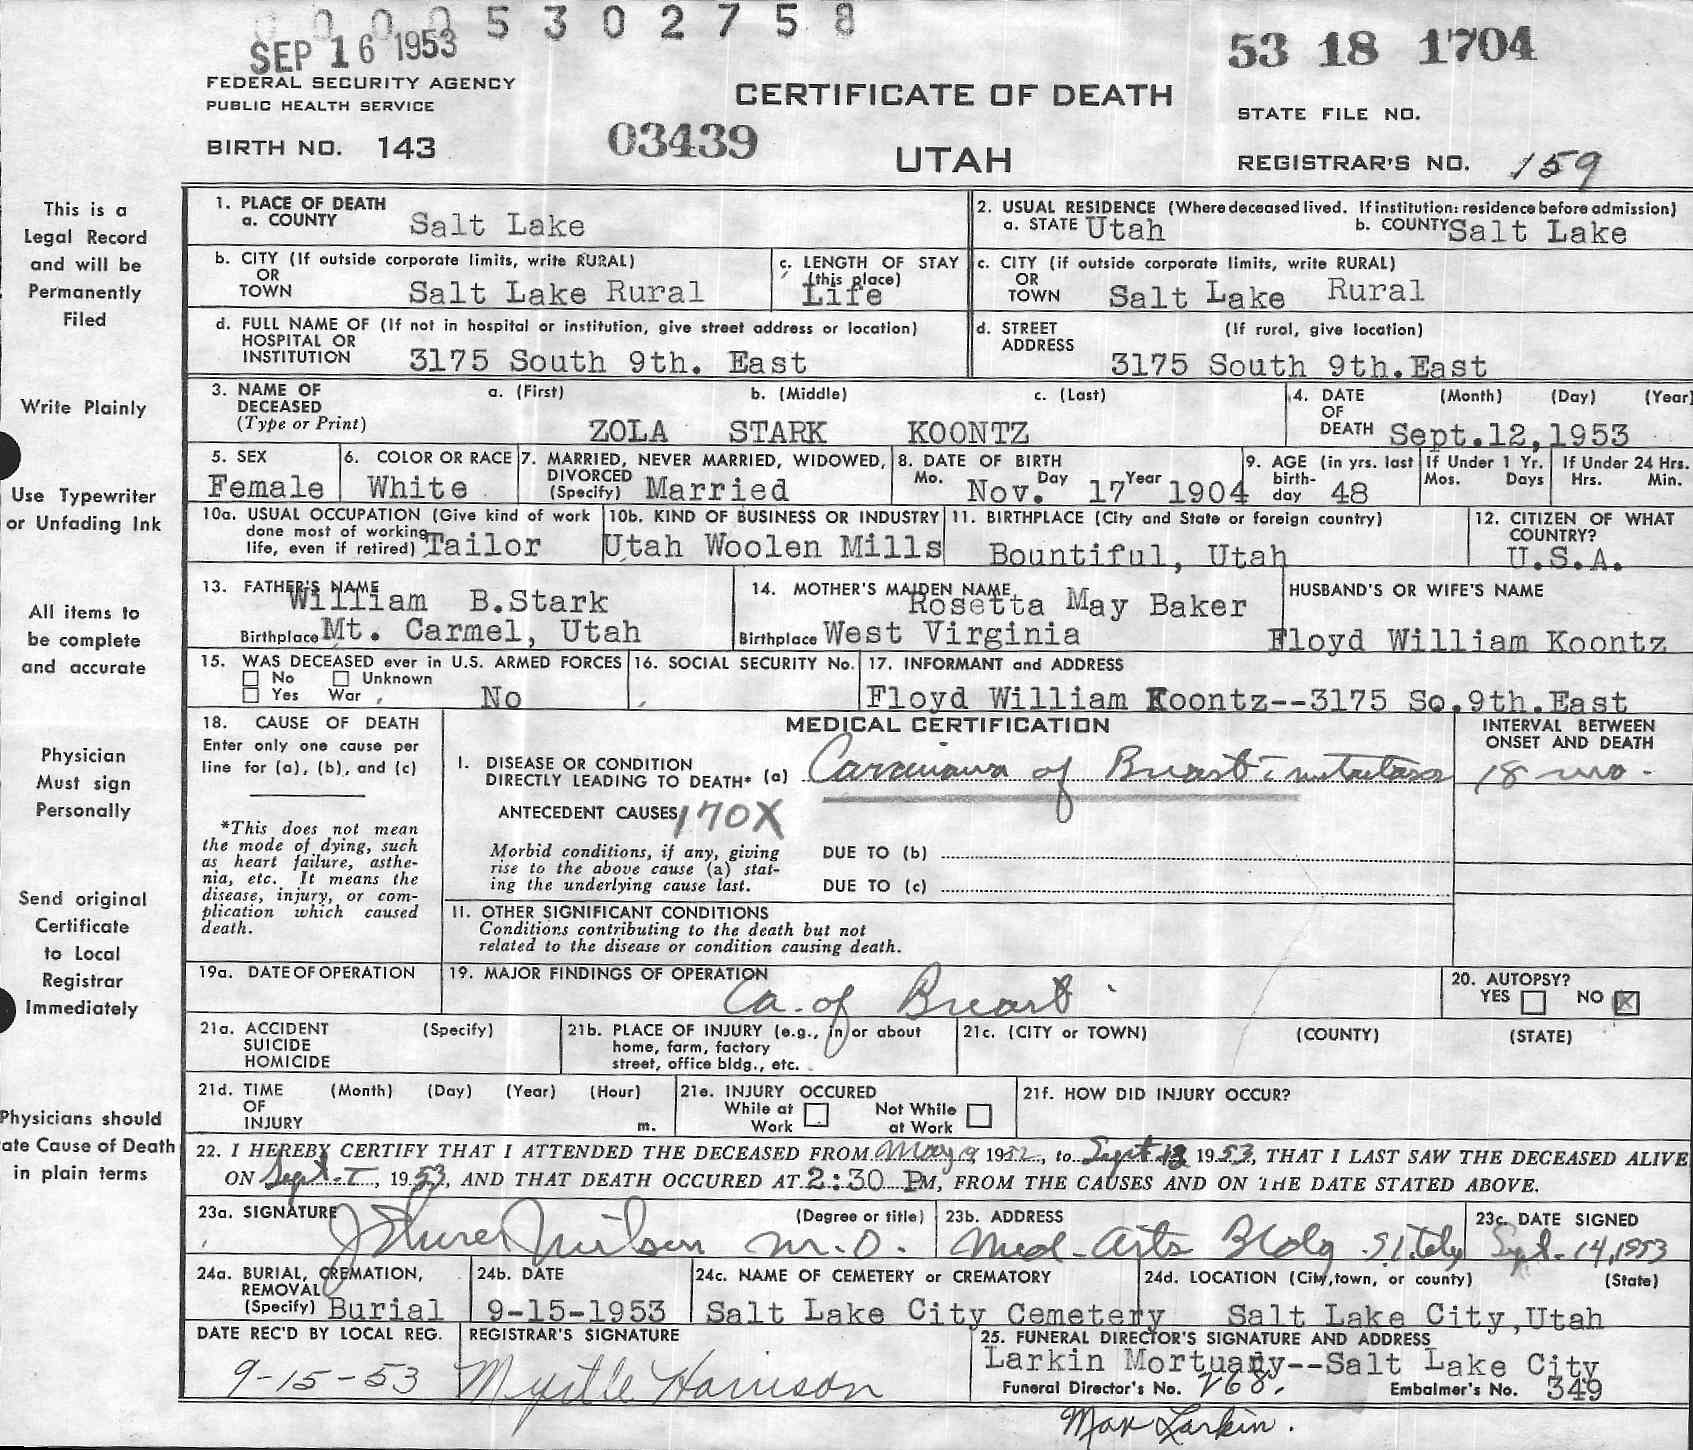 0 0 0 5 3 0 2 7 5 8
SEP 16 1953
53 18 1704
FEDERAL SECURITY AGENCY
PUBLIC HEALTH SERVICE
CERTIFICATE OF DEATH
STATE FILE NO.
BIRTH NO. 143
03439
UTAH
REGISTRAR'S NO. 159
This is a
Legal Record
and will be
Permanently
Filed
Write Plainly
Use Typewriter
or Unfading Ink
All items to
be complete
and accurate
Physician
Must sign
Personally
Send original
Certificate
to Local
Registrar
Immediately
Physicians should
ate Cause of Death
in plain terms
1. PLACE OF DEATH
a. COUNTY Salt Lake
2. USUAL RESIDENCE (Where deceased lived. If institution: residence before admission)
a. STATE Utah b. COUNTY Salt Lake
b. CITY (If outside corporate limits, write RURAL)
OR
TOWN Salt Lake Rural
c. LENGTH OF STAY
(this place)
Life
c. CITY (if outside corporate limits, write RURAL)
OR
TOWN Salt Lake Rural
d. FULL NAME OF (If not in hospital or institution, give street address or location)
HOSPITAL OR
INSTITUTION 3175 South 9th. East
d. STREET (If rural, give location)
ADDRESS
3175 South 9th.East
3. NAME OF a. (First) b. (Middle) c. (Last)
DECEASED
(Type or Print)
ZOLA STARK KOONTZ
4. DATE (Month) (Day) (Year)
OF
DEATH Sept.12,1953
5. SEX
Female
6. COLOR OR RACE
White
7. MARRIED, NEVER MARRIED, WIDOWED,
DIVORCED
(Specify) Married
8. DATE OF BIRTH
Mo. Day Year
Nov. 17 1904
9. AGE (in yrs. last
birth-
day 48
If Under 1 Yr.
Mos. Days
If Under 24 Hrs.
Hrs. Min.
10a. USUAL OCCUPATION (Give kind of work
done most of working
life, even if retired) Tailor
10b. KIND OF BUSINESS OR INDUSTRY
Utah Woolen Mills
11. BIRTHPLACE (City and State or foreign country)
Bountiful, Utah
12. CITIZEN OF WHAT
COUNTRY?
U.S.A.
13. FATHER'S NAME
William B.Stark
Birthplace Mt. Carmel, Utah
14. MOTHER'S MAIDEN NAME
Rosetta May Baker
Birthplace West Virginia
HUSBAND'S OR WIFE'S NAME
Floyd William Koontz
15. WAS DECEASED ever in U.S. ARMED FORCES
No Unknown
Yes War
No
16. SOCIAL SECURITY No.
17. INFORMANT and ADDRESS
Floyd William Koontz--3175 So.9th.East
18. CAUSE OF DEATH
Enter only one cause per
line for (a), (b), and (c)
*This does not mean
the mode of dying, such
as heart failure, asthe-
nia, etc. It means the
disease, injury, or com-
plication which caused
death.
MEDICAL CERTIFICATION
INTERVAL BETWEEN
ONSET AND DEATH
I. DISEASE OR CONDITION
DIRECTLY LEADING TO DEATH* (a) Carcinoma of Breast c metastases
18 mo.
ANTECEDENT CAUSES 170X
Morbid conditions, if any, giving
rise to the above cause (a) stat-
ing the underlying cause last.
DUE TO (b)
DUE TO (c)
11. OTHER SIGNIFICANT CONDITIONS
Conditions contributing to the death but not
related to the disease or condition causing death.
19a. DATE OF OPERATION
19. MAJOR FINDINGS OF OPERATION
Ca. of Breast
20. AUTOPSY?
YES NO X
21a. ACCIDENT (Specify)
SUICIDE
HOMICIDE
21b. PLACE OF INJURY (e.g., in or about
home, farm, factory
street, office bldg., etc.
21c. (CITY or TOWN) (COUNTY) (STATE)
21d. TIME (Month) (Day) (Year) (Hour)
OF
INJURY m.
21e. INJURY OCCURED
While at Not While
Work at Work
21f. HOW DID INJURY OCCUR?
22. I HEREBY CERTIFY THAT I ATTENDED THE DECEASED FROM May 9, 1952, to Sept 12 1953, THAT I LAST SAW THE DECEASED ALIVE
ON Sept. 7, 1953, AND THAT DEATH OCCURED AT 2:30 PM, FROM THE CAUSES AND ON THE DATE STATED ABOVE.
23a. SIGNATURE (Degree or title)
M.D.
23b. ADDRESS
Med-Arts Bldg
23c. DATE SIGNED
Sept. 14, 1953
24a. BURIAL, CREMATION,
REMOVAL
(Specify) Burial
24b. DATE
9-15-1953
24c. NAME OF CEMETERY or CREMATORY
Salt Lake City Cemetery
24d. LOCATION (City, town, or county) (State)
Salt Lake City,Utah
DATE REC'D BY LOCAL REG.
9-15-53
REGISTRAR'S SIGNATURE
Myrtle Harrison
25. FUNERAL DIRECTOR'S SIGNATURE AND ADDRESS
Larkin Mortuary--Salt Lake City
Funeral Director's No. 268. Embalmer's No. 349
Max Larkin.